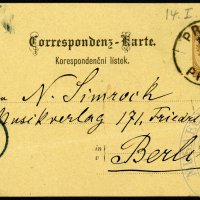 14. I.
Correspondenz-Karte.
Korespondenční lístek.
N. Simrock
Musikverlag 171, Friedri
in
Berli